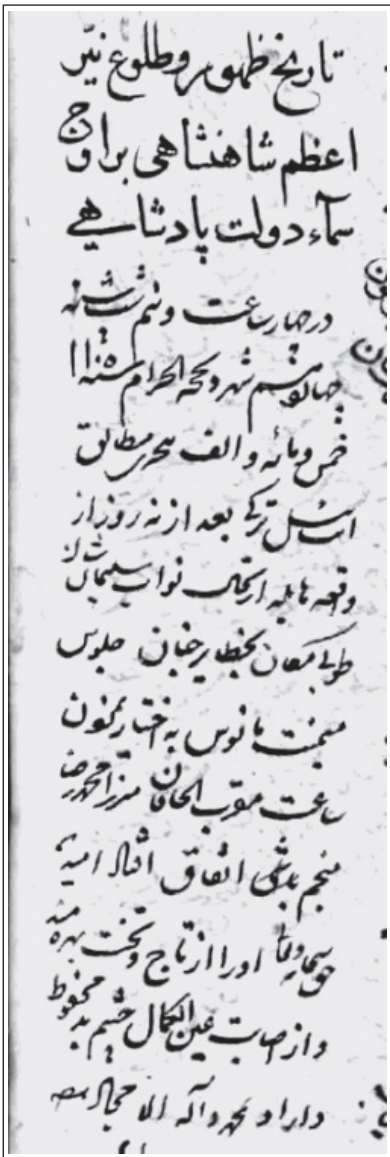 تاریخ ظهور و طلوع نیّر
اعظم شاهنشاهی بر اوج
سمآء دولت پادشاهی
در چهار ساعت و نیم شب شنبه
چهاردهم شهر ذیحجه الحرام سنه
خمس و مائه و الف هجری مطابق
ایت ئیل ترکی بعد از نه روز از
واقعه هایله ارتحال نواب سلیمان شأن
طوبی مکان بخطایر جنان جلوس
میمنت مانوس به اختیار میمون
ساعت مقرب الخاقان میرزا محمد رضا
منجم باشی اتفاق افتاد امید که
حق سبحانه و تعالی او را از تاج و تخت بهره مند
و از اصابت عین الکمال چشم بد محفوظ
داراد بمحمد و آله الامجاد